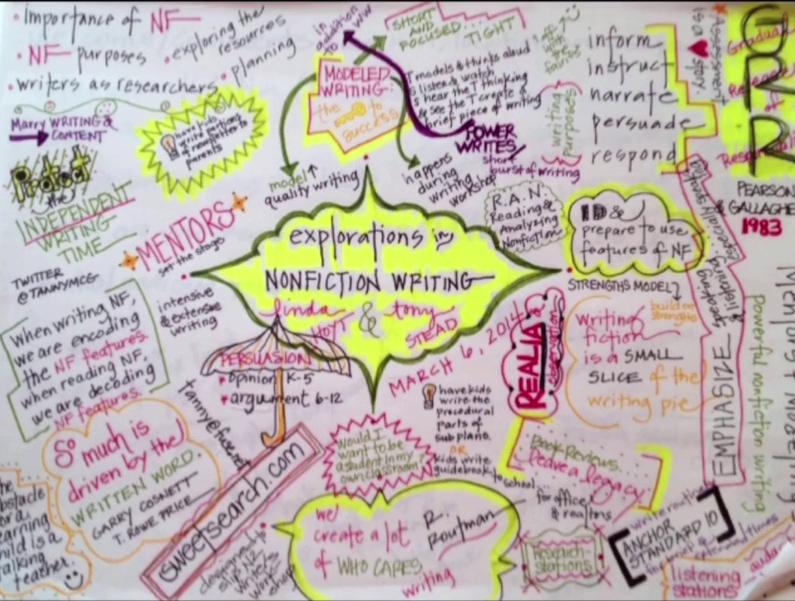 • importance of NF
• NF purposes
• exploring the
resources
• planning
• writers as researchers
Marry WRITING &
CONTENT
have kids
write portions
of newsletter to
parents
Protect
the
INDEPENDENT
WRITING
TIME
MENTORS
set the stage
TWITTER
@TANNYMCG
in
addition
to WW
SHORT
AND
FOCUSED
TIGHT
MODELED
WRITING:
the
to
success
T models & thinks aloud
S listen & watch
S hear the T thinking
& see the T create a
brief piece of writing
POWER
WRITES
short
burst of writing
model
quality writing
happens
during
writing
workshop
writing
purposes
inform
instruct
narrate
persuade
respond
Assessment
is a
story
Gradual
Release
of
Responsibility
PEARSON
GALLAGHER
1983
R.A.N.
Reading &
Analyzing
Nonfiction
ID &
prepare to use
features of NF
STRENGTHS MODEL
build on
strengths
explorations in
NONFICTION WRITING
linda
HOYT
&
tony
STEAD
MARCH 6, 2014
intensive
& extensive
writing
When writing NF,
we are encoding
the NF features.
when reading NF,
we are decoding
NF features.
PERSUASION
• opinion K-5
• argument 6-12
REALIA
observation
Writing
fiction
is a SMALL
SLICE of the
writing pie
EMPHASIZE
speaking
& listening
especially speaking
powerful nonfiction writing
have kids
write the
procedural
parts of
sub plans.
OR
kids write
guidebook to school
for office
& realtors
Book Reviews:
leave a legacy
So much is
driven by the
WRITTEN WORD.
GARRY COSNETT
T. ROWE PRICE
sweetsearch.com
Would I
want to be
a student in my
own classroom?
we
create a lot
of WHO CARES
writing
R.
Routman
Research
stations
ANCHOR
STANDARD 10
listening
stations
learning
child is a
talking
teacher.